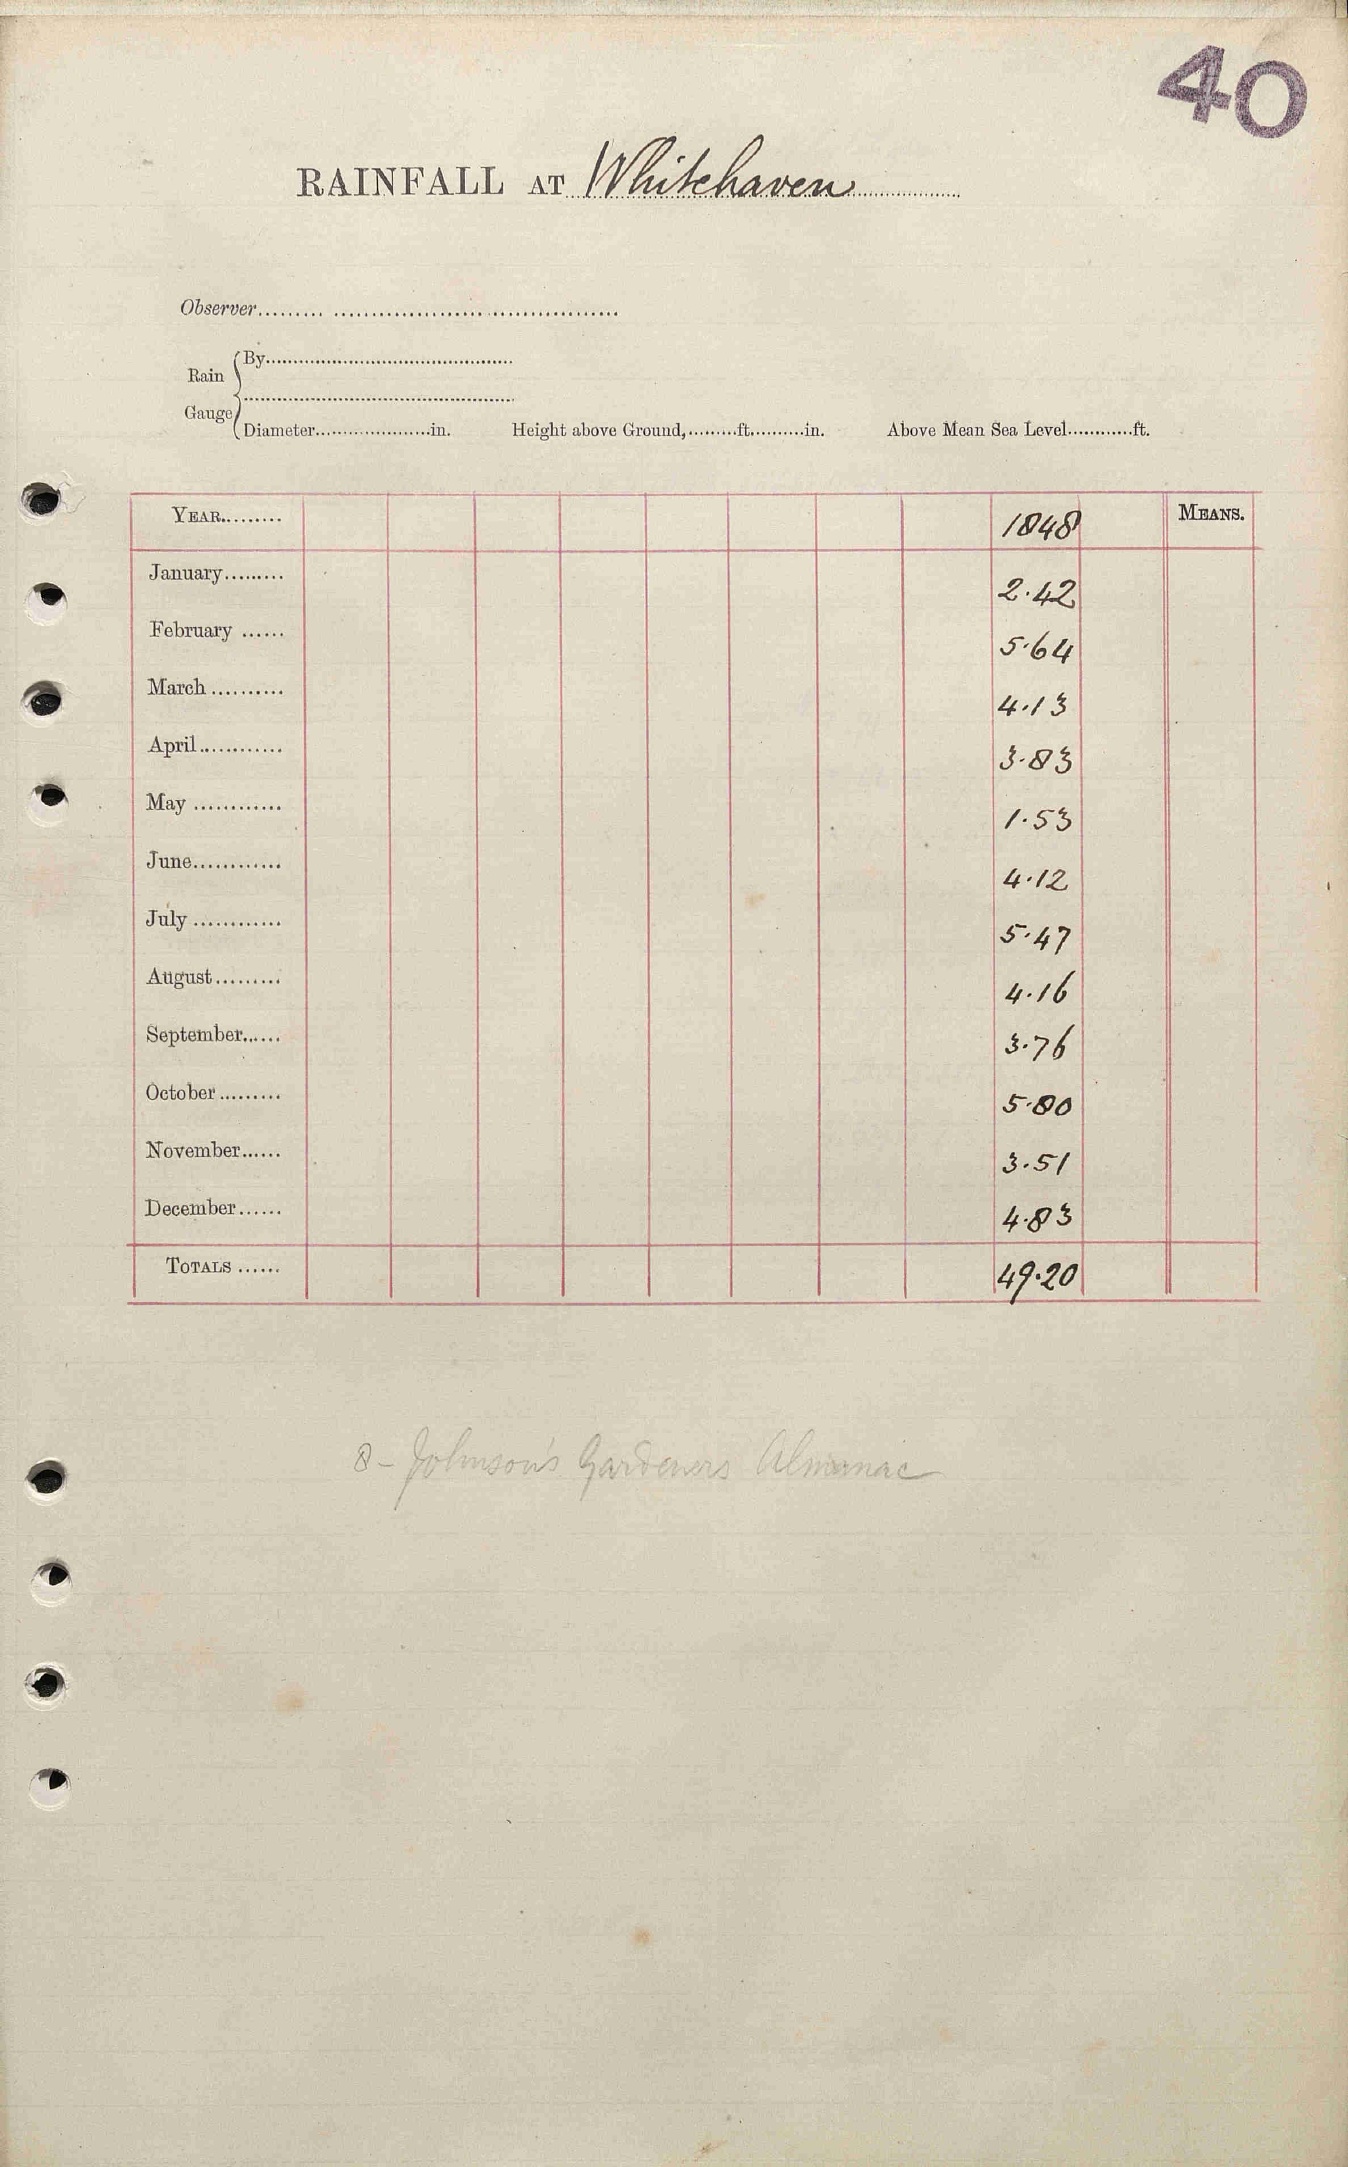 40
RAINFALL AT Whitehaven
Observer
Rain Gauge
By
Diameter in. Height above Ground, ft. in. Above Mean Sea Level ft.
YEAR 1848 MEANS.
January 2.42
February 5.64
March 4.13
April 3.83
May 1.53
June 4.12
July 5.47
August 4.16
September 3.76
October 5.80
November 3.51
December 4.83
TOTALS 49.20
8 - Johnson's Gardeners Almanac